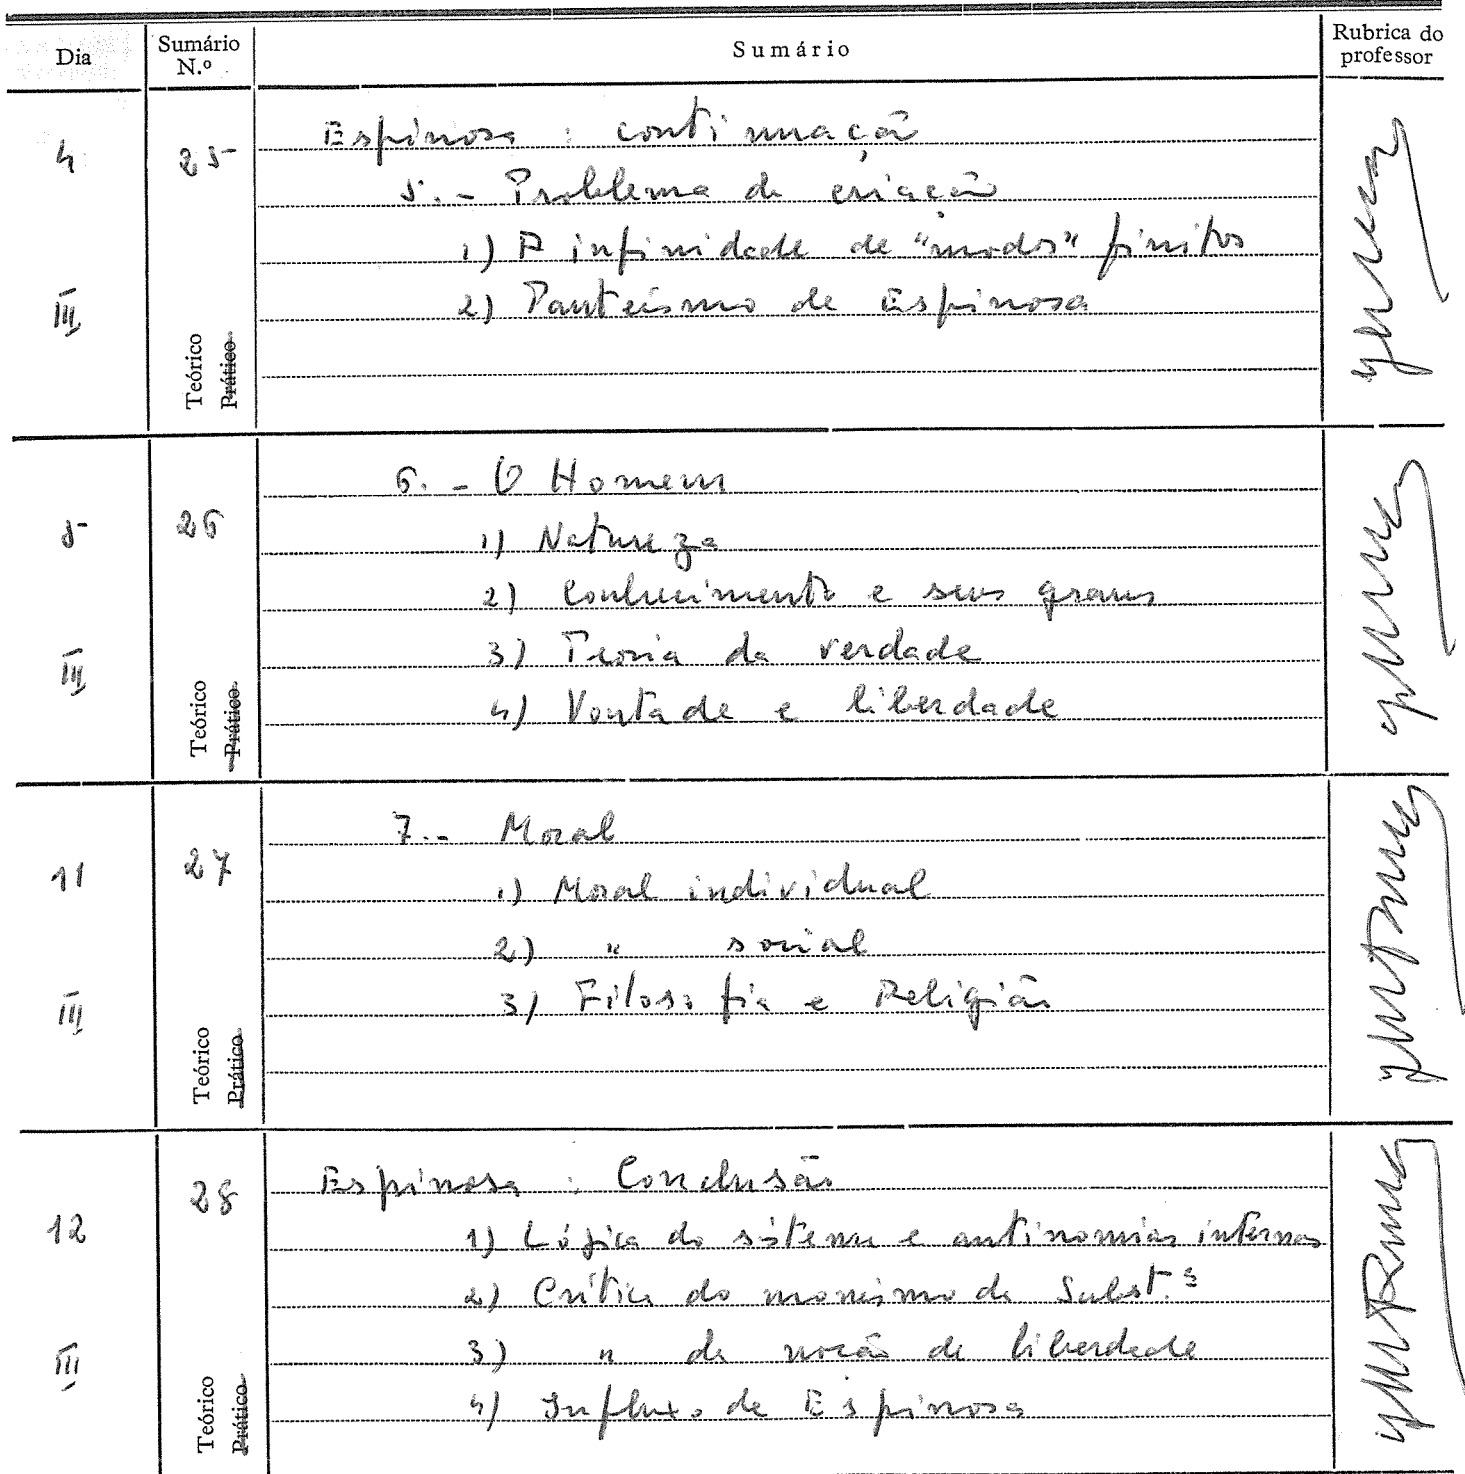 Dia
Sumário N.º
Sumário
Rubrica do professor
4
III
25
Teórico
Prático
Espinosa : continuação
5. - Problema da criação
1) A infinidade de "modos" finitos
2) Panteísmo de Espinosa
5
III
26
Teórico
Prático
6. - O Homem
1) Natureza
2) Conhecimento e seus graus
3) Teoria da verdade
4) Vontade e liberdade
11
III
27
Teórico
Prático
7. - Moral
1) Moral individual
2) " social
3) Filosofia e Religião
12
III
28
Teórico
Prático
Espinosa : Conclusão
1) Lógica do sistema e antinomias internas
2) Crítica do monismo da Subst.ª
3) " da noção de liberdade
4) Influxo de Espinosa